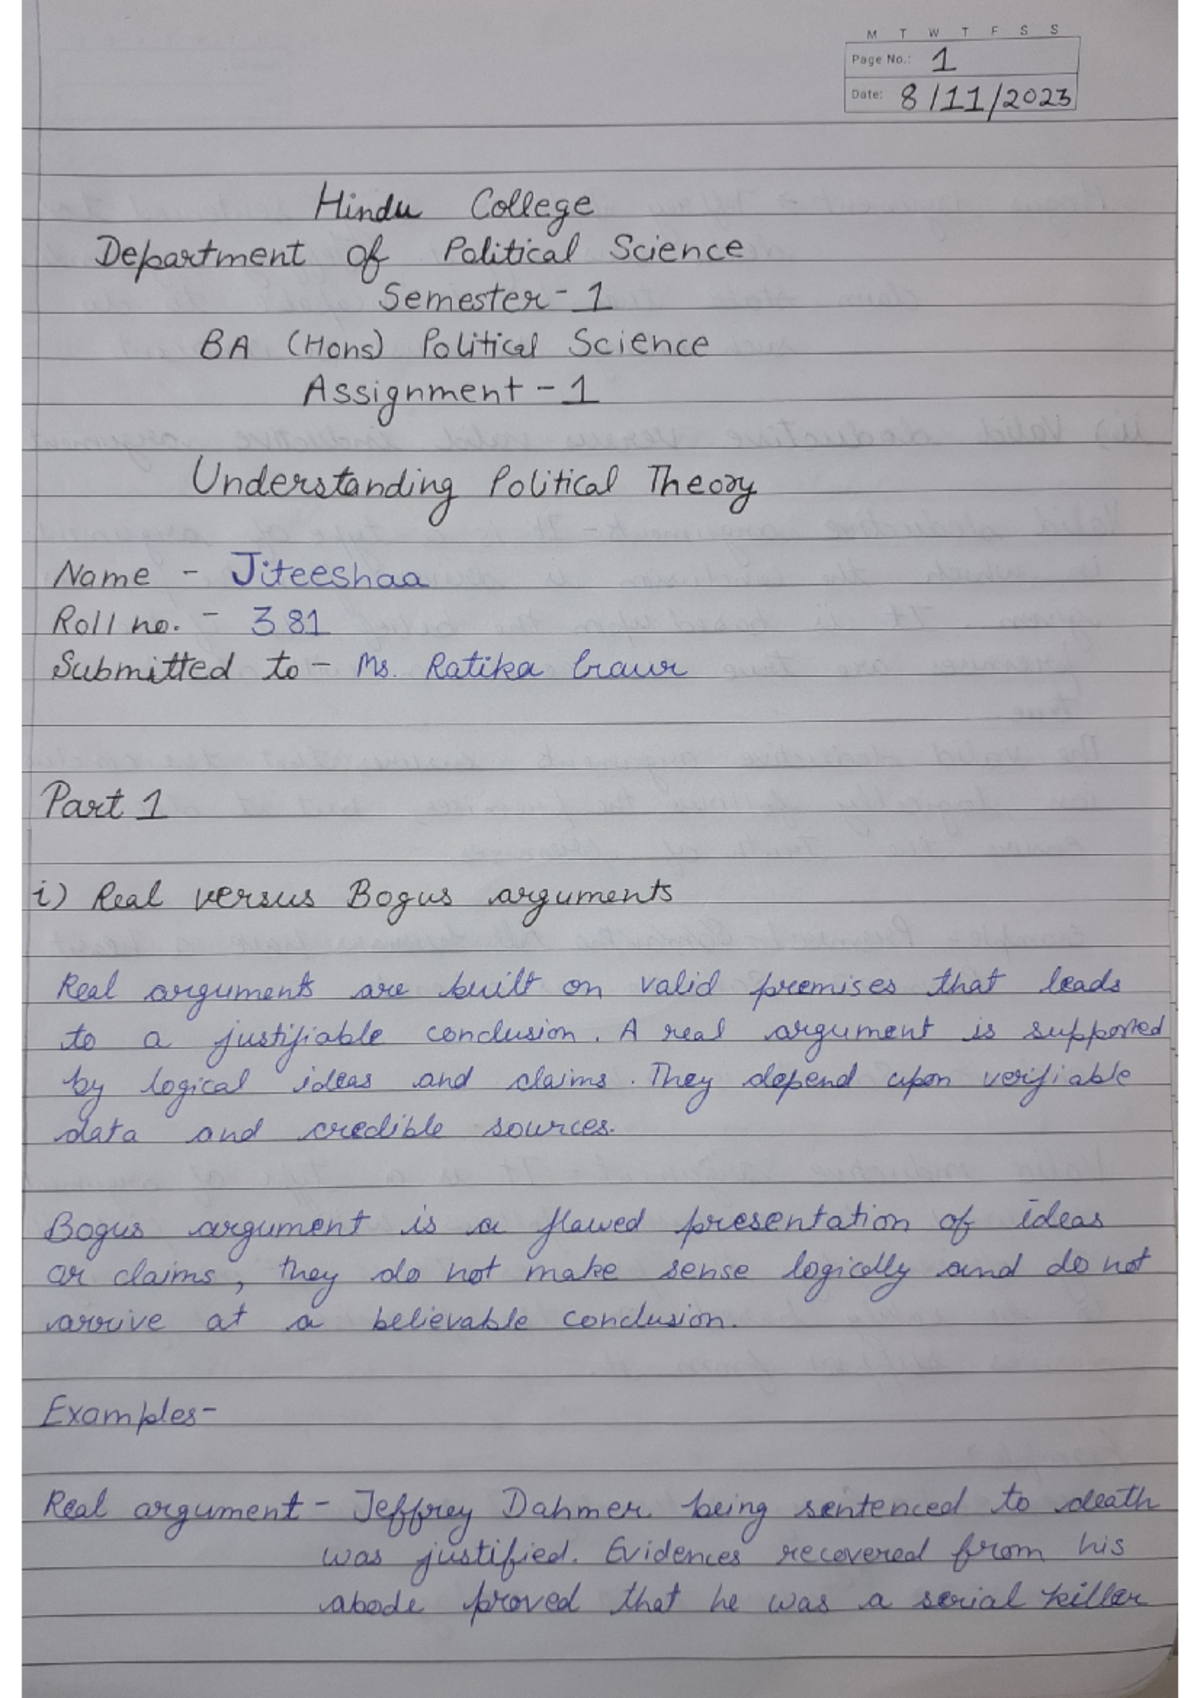 M T W T F S S
Page No.: 1
Date: 8/11/2023
Hindu College
Department of Political Science
Semester - 1
BA (Hons) Political Science
Assignment - 1
Understanding Political Theory
Name - Jiteeshaa
Roll no. - 381
Submitted to - Ms. Ratika Gaur
Part 1
i) Real versus Bogus arguments
Real arguments are built on valid premises that leads
to a justifiable conclusion. A real argument is supported
by logical ideas and claims. They depend upon verifiable
data and credible sources.
Bogus argument is a flawed presentation of ideas
or claims, they do not make sense logically and do not
arrive at a believable conclusion.
Examples-
Real argument - Jeffrey Dahmer being sentenced to death
was justified. Evidences recovered from his
abode proved that he was a serial killer